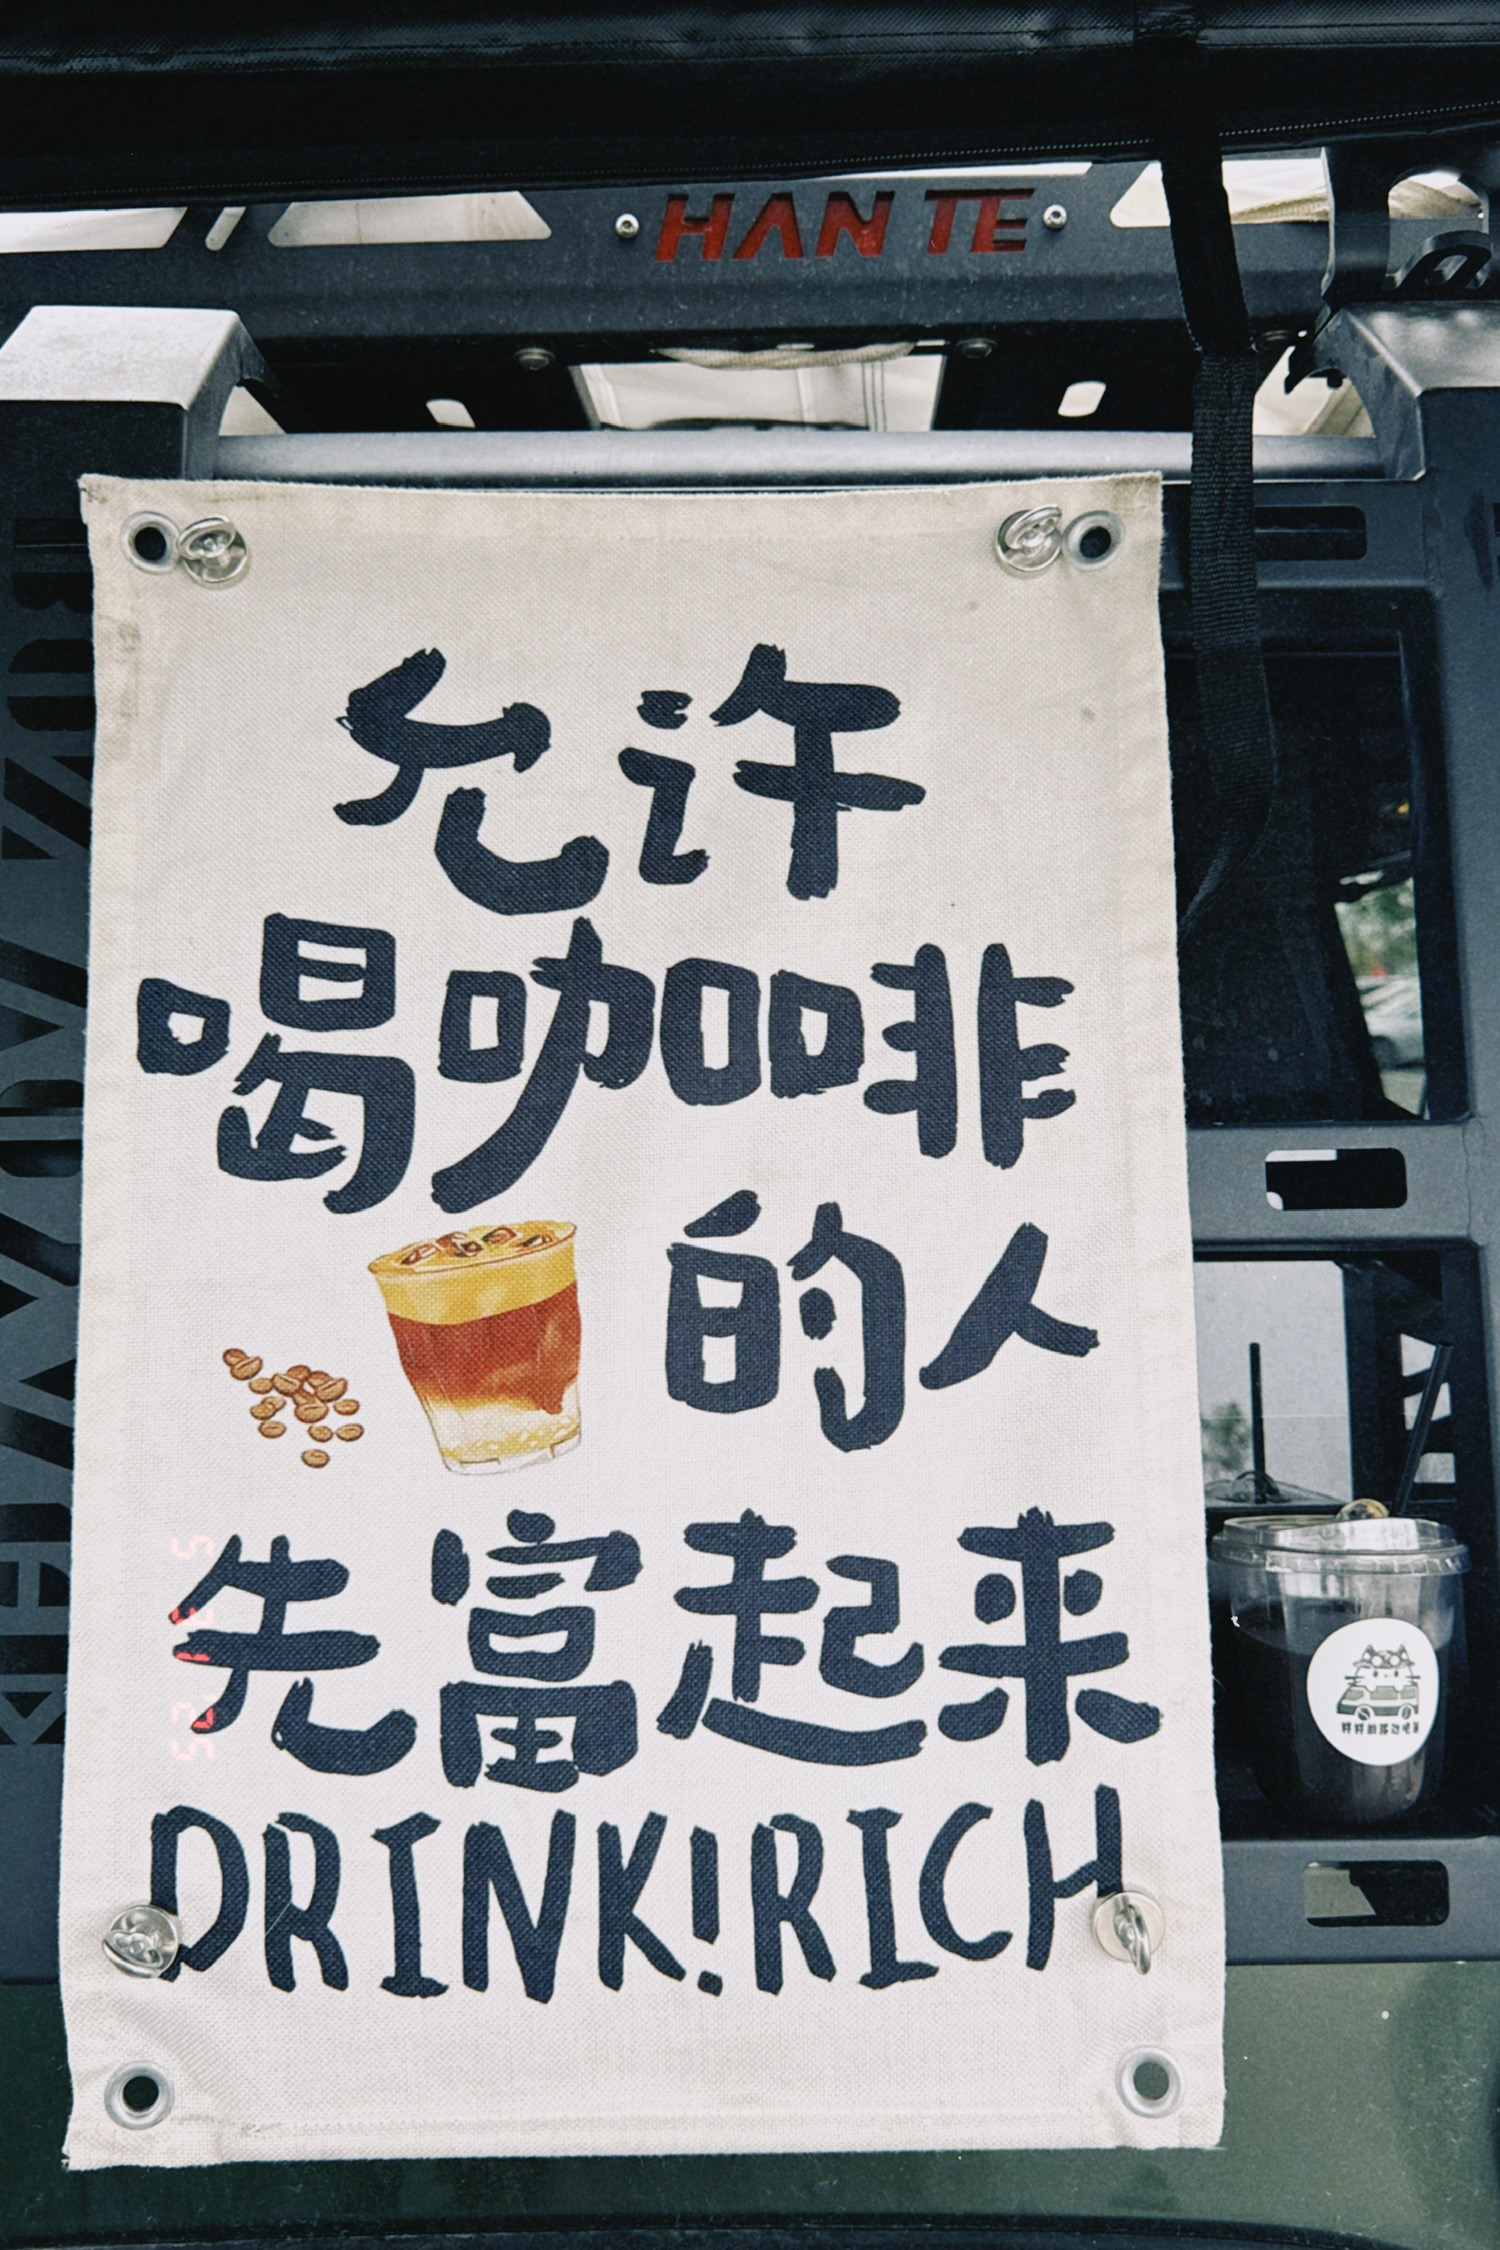 HANTE
允许
喝咖啡
的人
先富起来
DRINK!RICH